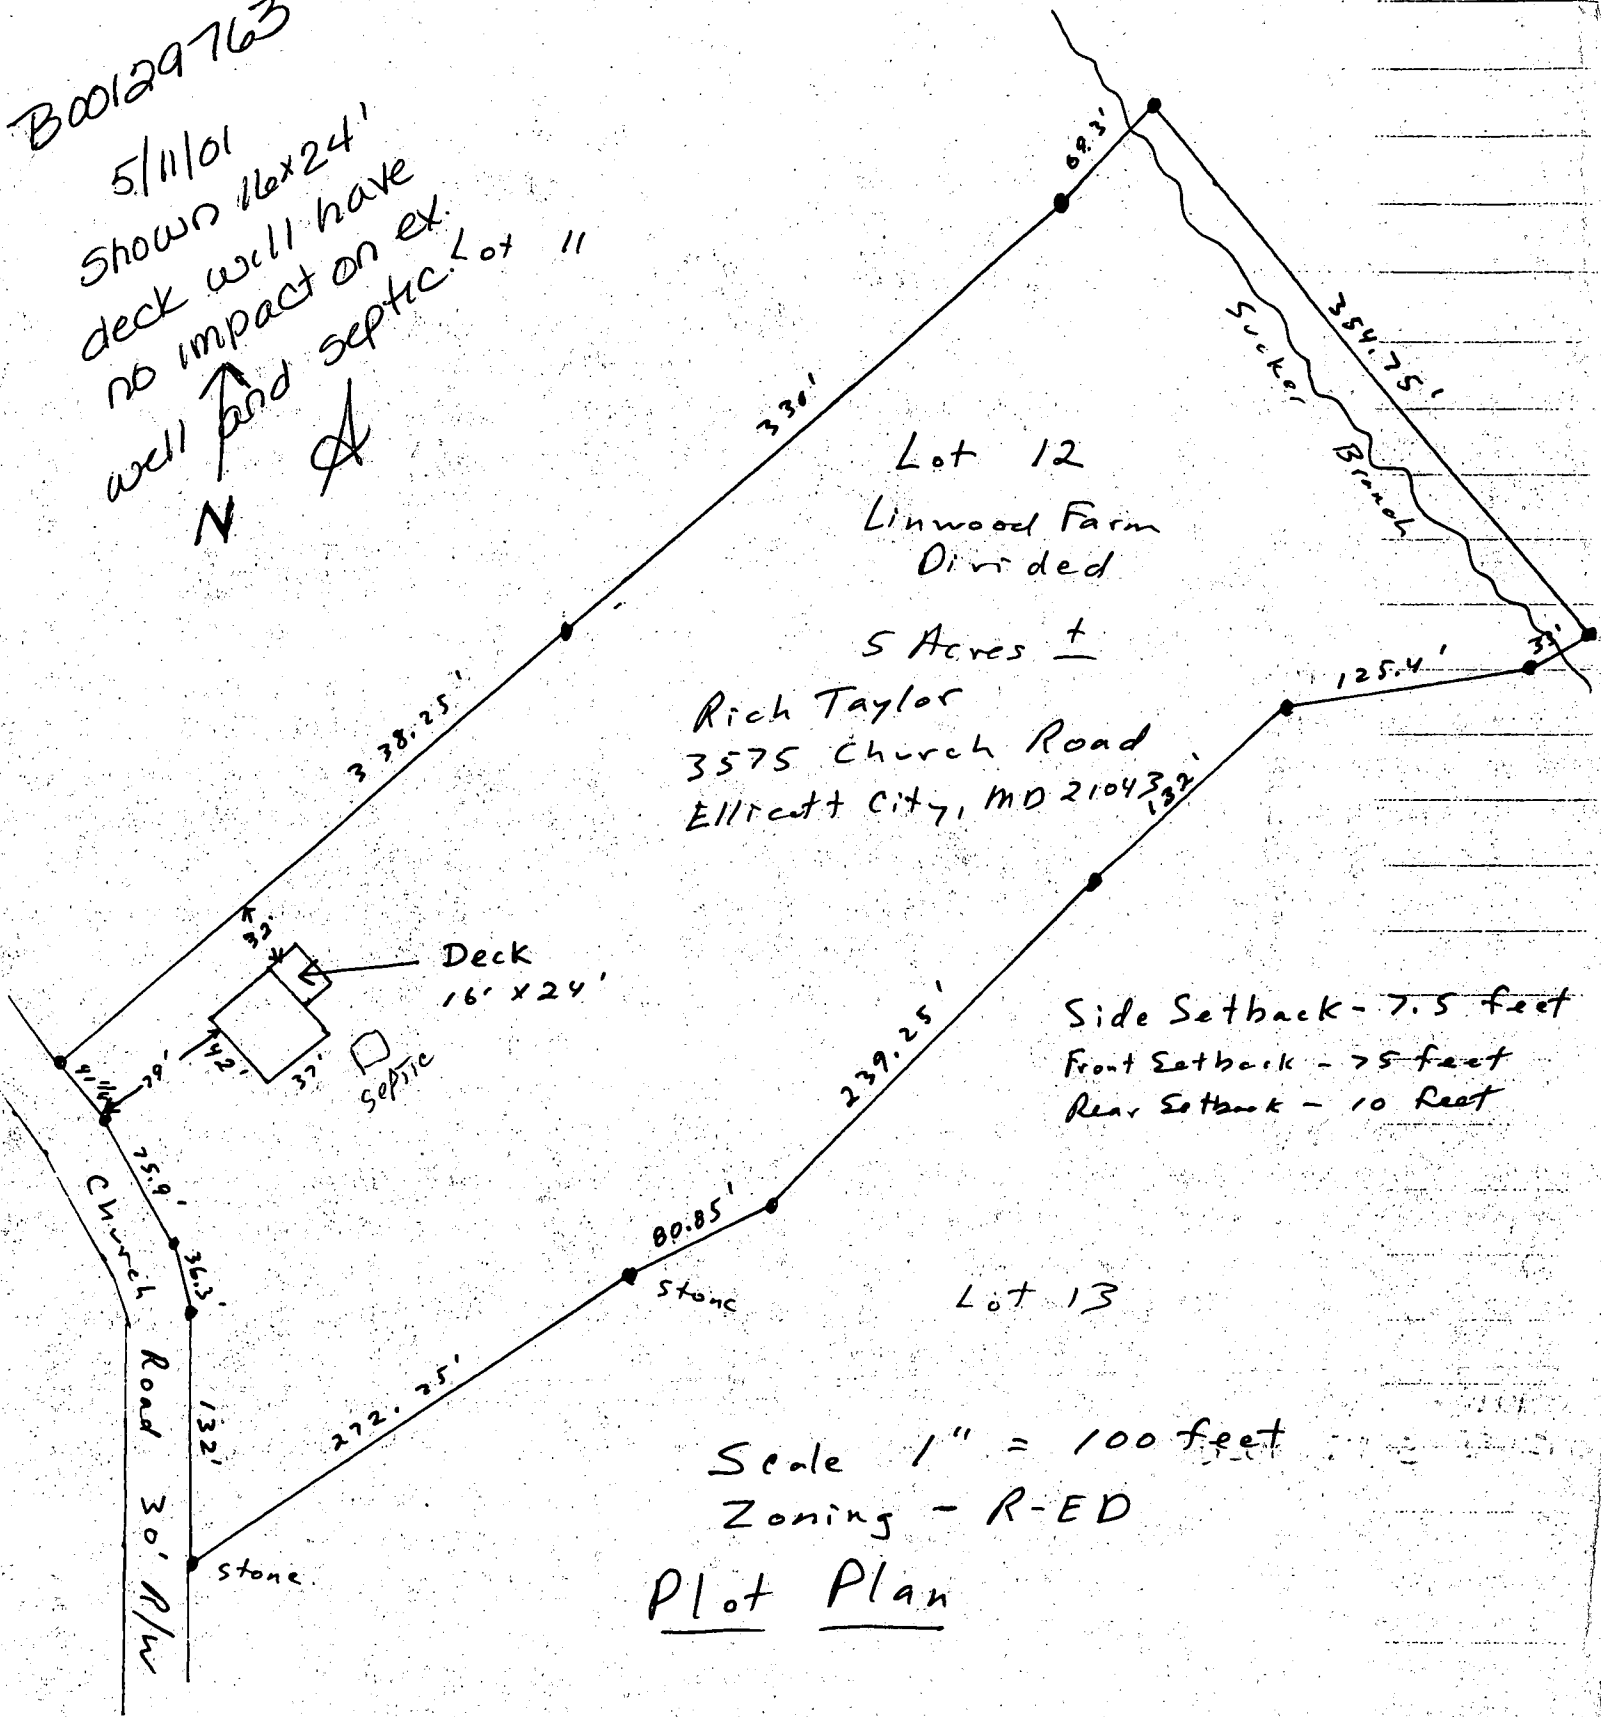 B00129763
5/11/01
Shown 16x24'
deck will have
no impact on ex.
well and septic.
N
Lot 11
69.3'
330'
354.75'
Sucker
Branch
Lot 12
Linwood Farm
Divided
5 Acres ±
Rich Taylor
3575 Church Road
Ellicott City, MD 21043
33'
125.4'
132'
338.25'
32'
Deck
16' x 24'
42'
37'
Septic
79'
75.9'
36.3'
132'
Church Road 30' R/W
239.25'
Side Setback - 7.5 feet
Front Setback - 75 feet
Rear Setback - 10 feet
80.85'
stone
Lot 13
272.25'
stone.
Scale 1" = 100 feet
Zoning - R-ED
Plot Plan